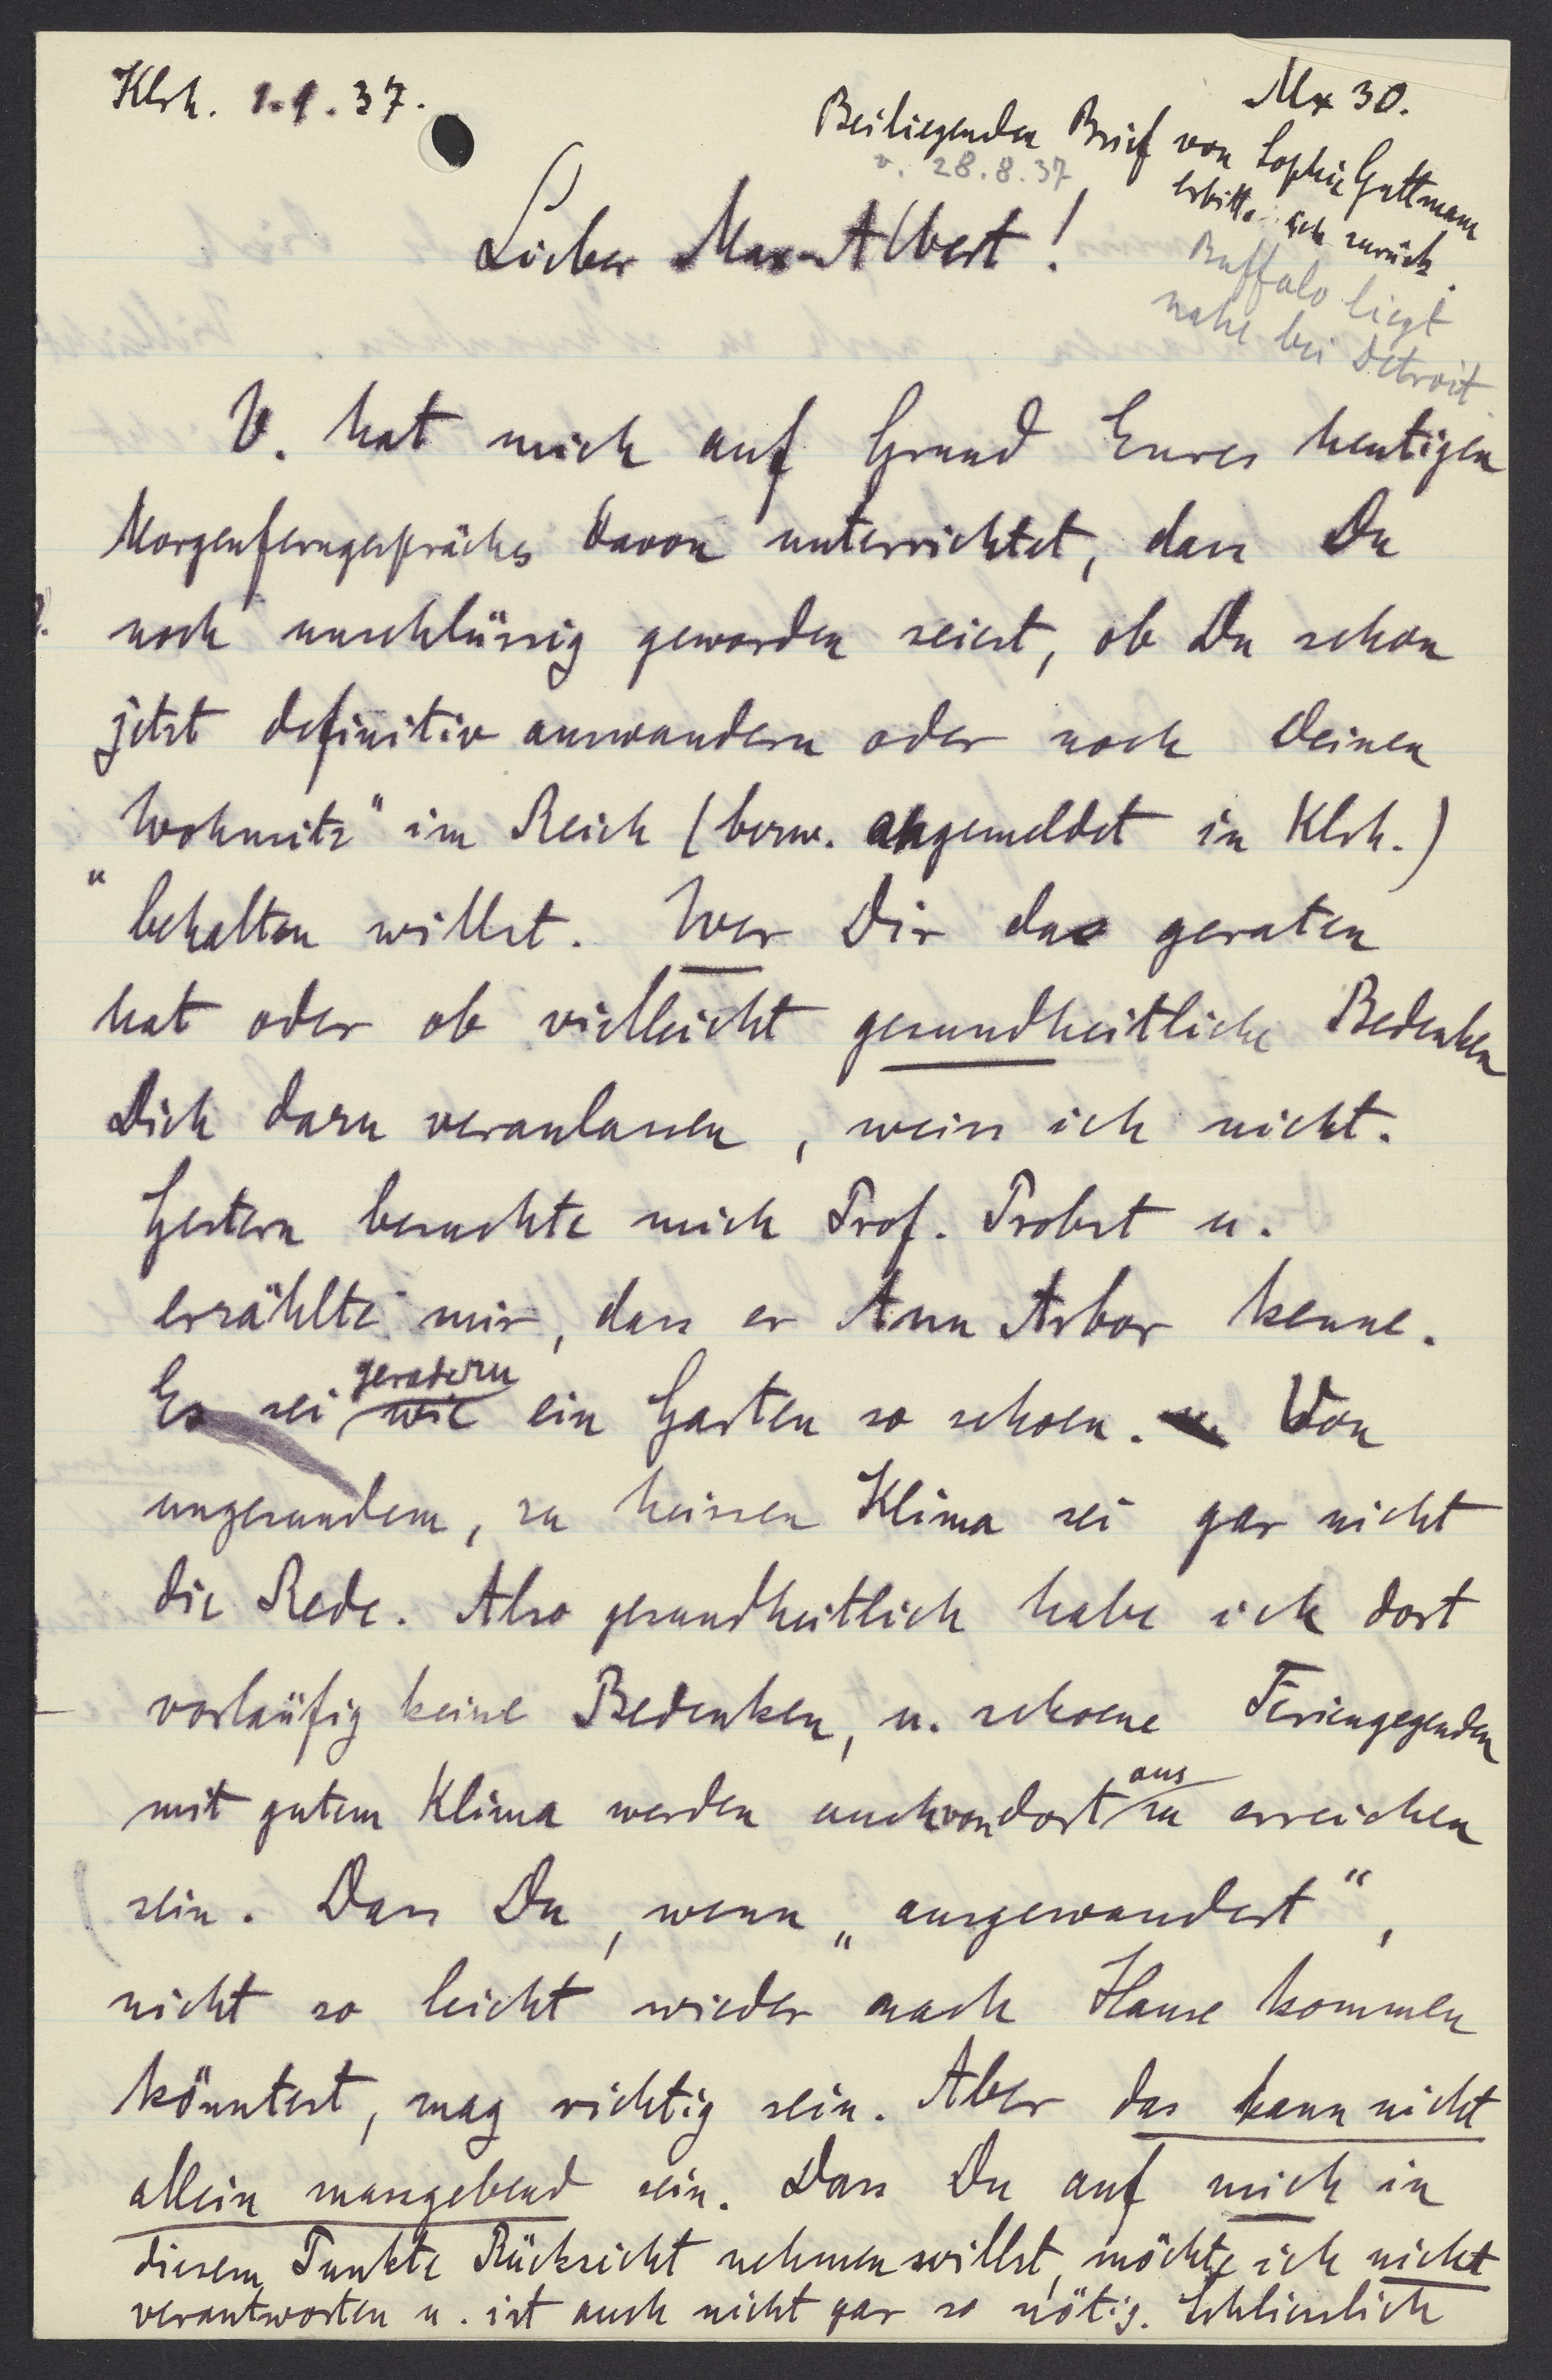 Klrh. 1.9.37.
Mx 30.
Beiliegenden Brief von Sophie Guttmann
v. 28.8.37
erbitte ich zurück.
Buffalo liegt
nahe bei Detroit.
Lieber Max-Albert!
V. hat mich auf Grund Eures heutigen
Morgenferngesprächs davon unterrichtet, dass Du
noch unschlüssig geworden seiest, ob Du schon
jetzt definitiv auswandern oder noch Deinen
"Wohnsitz" im Reich (bezw. angemeldet in Klrh.)
behalten willst. Wer Dir das geraten
hat oder ob vielleicht gesundheitliche Bedenken
Dich dazu veranlassen, weiss ich nicht.
Gestern besuchte mich Prof. Probst u.
erzählte mir, dass er Ann Arbor kenne.
Es sei geradezu wie ein Garten so schoen. Von
ungesundem, zu heissen Klima sei gar nicht
die Rede. Also gesundheitlich habe ich dort
vorläufig keine Bedenken, u. schoene Feriengegenden
mit gutem Klima werden auch von dort aus zu erreichen
sein. Dass Du, wenn „ausgewandert“,
nicht so leicht wieder nach Hause kommen
könntest, mag richtig sein. Aber das kann nicht
allein massgebend sein. Dass Du auf mich in
diesem Punkte Rücksicht nehmen willst, möchte ich nicht
verantworten u. ist auch nicht gar so nötig. Schliesslich